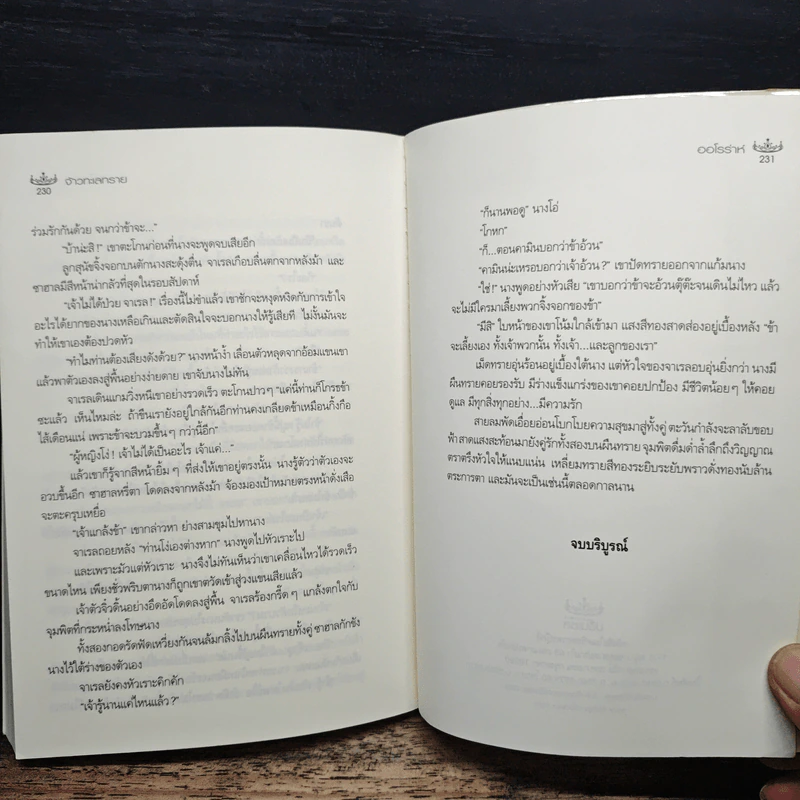 230
จ้าวทะเลทราย
ร่วมรักกันด้วย จนกว่าข้าจะ..."
"บ้าน่ะสิ!" เขาตะโกนก่อนที่นางจะพูดจบเสียอีก
ลูกสุนัขจิ้งจอกบนตักนางสะดุ้งตื่น จาเรลเกือบลื่นตกจากหลังม้า และ
ซาฮาลมีสีหน้าน่ากลัวที่สุดในรอบสัปดาห์
"เจ้าไม่ได้ป่วย จาเรล!" เรื่องนี้ไม่ขำแล้ว เขาชักจะหงุดหงิดกับการเข้าใจ
อะไรได้ยากของนางเหลือเกินและตัดสินใจจะบอกนางให้รู้เสียที ไม่งั้นมันจะ
ทำให้เขาเองต้องปวดหัว
"ทำไมท่านต้องเสียงดังด้วย?" นางหน้าง้ำ เลื่อนตัวหลุดจากอ้อมแขนเขา
แล้วพาตัวเองลงสู่พื้นอย่างง่ายดาย เขาจับนางไม่ทัน
จาเรลเดินแกมวิ่งหนีเขาอย่างรวดเร็ว ตะโกนปาวๆ "แค่นี้ท่านก็โกรธข้า
ซะแล้ว เห็นไหมล่ะ ถ้าขืนเรายังอยู่ใกล้กันอีกท่านคงเกลียดข้าเหมือนกิ้งกือ
ไส้เดือนแน่ เพราะข้าจะบวมขึ้นๆ กว่านี้อีก"
"ผู้หญิงโง่! เจ้าไม่ได้เป็นอะไร เจ้าแค่..."
แล้วเขาก็รู้จากสีหน้ายิ้มๆ ที่ส่งให้เขาอยู่ตรงนั้น นางรู้ตัวว่าตัวเองจะ
อวบขึ้นอีก ซาฮาลหรี่ตา โดดลงจากหลังม้า จ้องมองเป้าหมายตรงหน้าดั่งเสือ
จะตะครุบเหยื่อ
"เจ้าแกล้งข้า" เขากล่าวหา ย่างสามขุมไปหานาง
จาเรลถอยหลัง "ท่านโง่เองต่างหาก" นางพูดไปหัวเราะไป
และเพราะมัวแต่หัวเราะ นางจึงไม่ทันเห็นว่าเขาเคลื่อนไหวได้รวดเร็ว
ขนาดไหน เพียงชั่วพริบตานางก็ถูกเขาตวัดเข้าสู่วงแขนเสียแล้ว
เจ้าตัวจิ๋วดิ้นอย่างอึดอัดโดดลงสู่พื้น จาเรลร้องกรี๊ดๆ แกล้งตกใจกับ
จุมพิตที่กระหน่ำลงโทษนาง
ทั้งสองกอดรัดฟัดเหวี่ยงกันจนล้มกลิ้งไปบนผืนทรายทั้งคู่ ซาฮาลกักขัง
นางไว้ใต้ร่างของตัวเอง
จาเรลยังคงหัวเราะคิกคัก
"เจ้ารู้นานแค่ไหนแล้ว?"
ออโรร่าห์
231
"ก็นานพอดู" นางโอ่
"โกหก"
"ก็...ตอนคามินบอกว่าข้าอ้วน"
"คามินน่ะเหรอบอกว่าเจ้าอ้วน?" เขาปัดทรายออกจากแก้มนาง
"ใช่!" นางพูดอย่างหัวเสีย "เขาบอกว่าข้าจะอ้วนตุ๊ต๊ะจนเดินไม่ไหว แล้ว
จะไม่มีใครมาเลี้ยงพวกจิ้งจอกของข้า"
"มีสิ" ใบหน้าของเขาโน้มใกล้เข้ามา แสงสีทองสาดส่องอยู่เบื้องหลัง "ข้า
จะเลี้ยงเอง ทั้งเจ้าพวกนั้น ทั้งเจ้า...และลูกของเรา"
เม็ดทรายอุ่นร้อนอยู่เบื้องใต้นาง แต่หัวใจของจาเรลอบอุ่นยิ่งกว่า นางมี
ผืนทรายคอยรองรับ มีร่างแข็งแกร่งของเขาคอยปกป้อง มีชีวิตน้อยๆ ให้คอย
ดูแล มีทุกสิ่งทุกอย่าง...มีความรัก
สายลมพัดเอื่อยอ่อนโบกใบยความสุขมาสู่ทั้งคู่ ตะวันกำลังจะลาลับขอบ
ฟ้าสาดแสงสะท้อนมายังคู่รักทั้งสองบนผืนทราย จุมพิตดื่มด่ำล้ำลึกถึงวิญญาณ
ตราตรึงหัวใจให้แนบแน่น เหลี่ยมทรายสีทองระยิบระยับพราวดั่งทองนับล้าน
ตระการตา และมันจะเป็นเช่นนี้ตลอดกาลนาน
จบบริบูรณ์